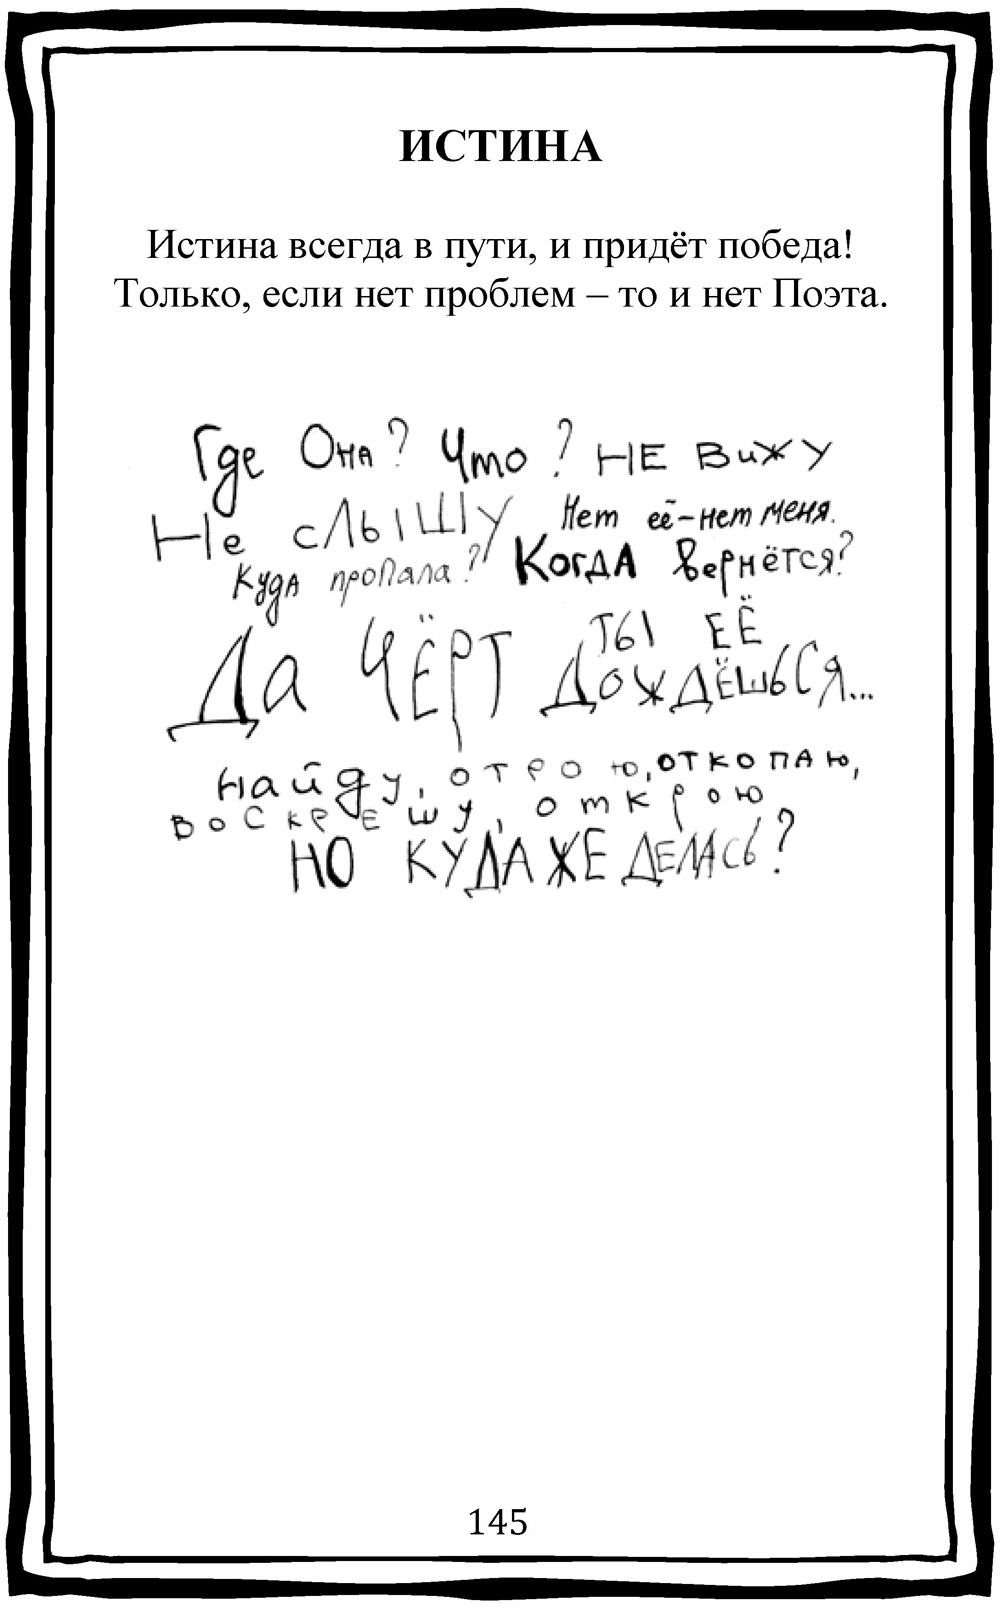 ИСТИНА
Истина всегда в пути, и придёт победа!
Только, если нет проблем – то и нет Поэта.
Где Она? Что? НЕ ВиЖУ
Не слЫШУ Нет её-нет меня.
Куда пропала? Когда вернётся?
Да ЧЁРТ ТЫ ЕЁ ДОЖДЁШЬСЯ...
найду, отрою, откопаю,
воскрешу, открою
НО КУДА ЖЕ ДЕЛАСЬ?
145